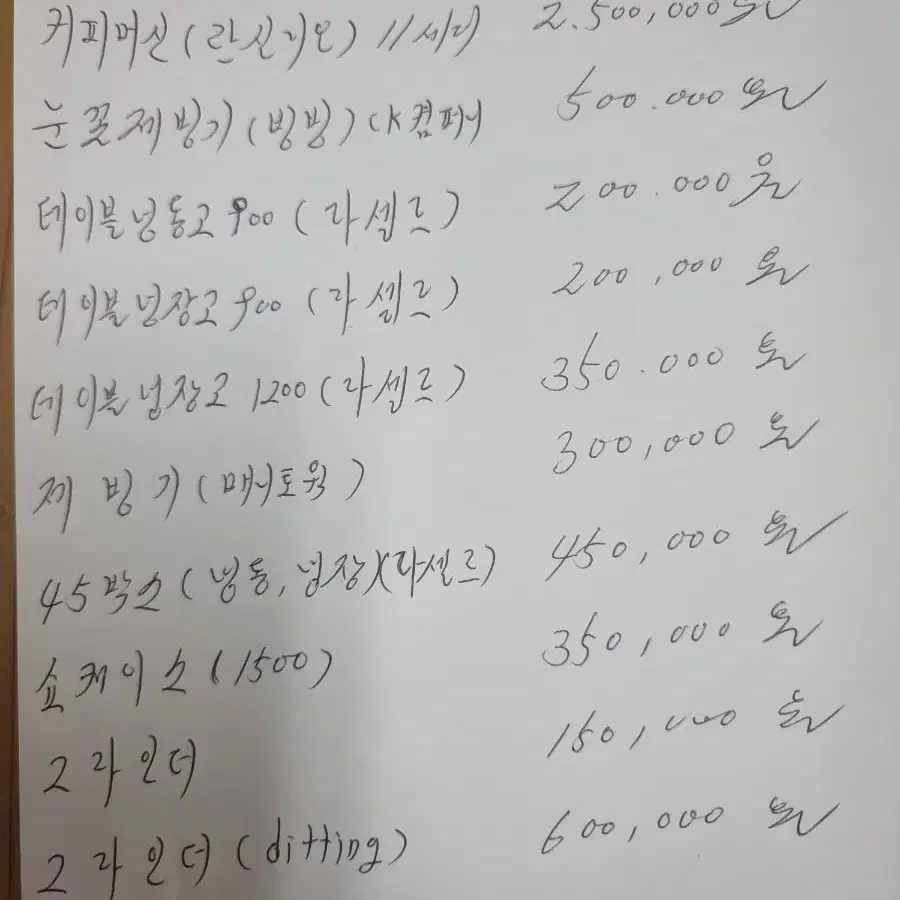 커피머신(란실리오) 11세디 2.500,000원
눈꽃제빙기(빙빙) CK컴퍼니 500.000원
테이블냉동고 900 (라셀르) 200.000원
테이블냉장고 900 (라셀르) 200,000원
테이블냉장고 1200 (라셀르) 350.000원
제빙기(매니토웍) 300,000원
45박스(냉동,냉장)(라셀르) 450,000원
쇼케이스(1500) 350,000원
그라인더 150,000원
그라인더(ditting) 600,000원